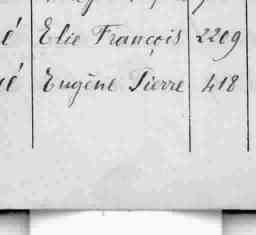 é Elie François 2209
é Eugène Pierre 418